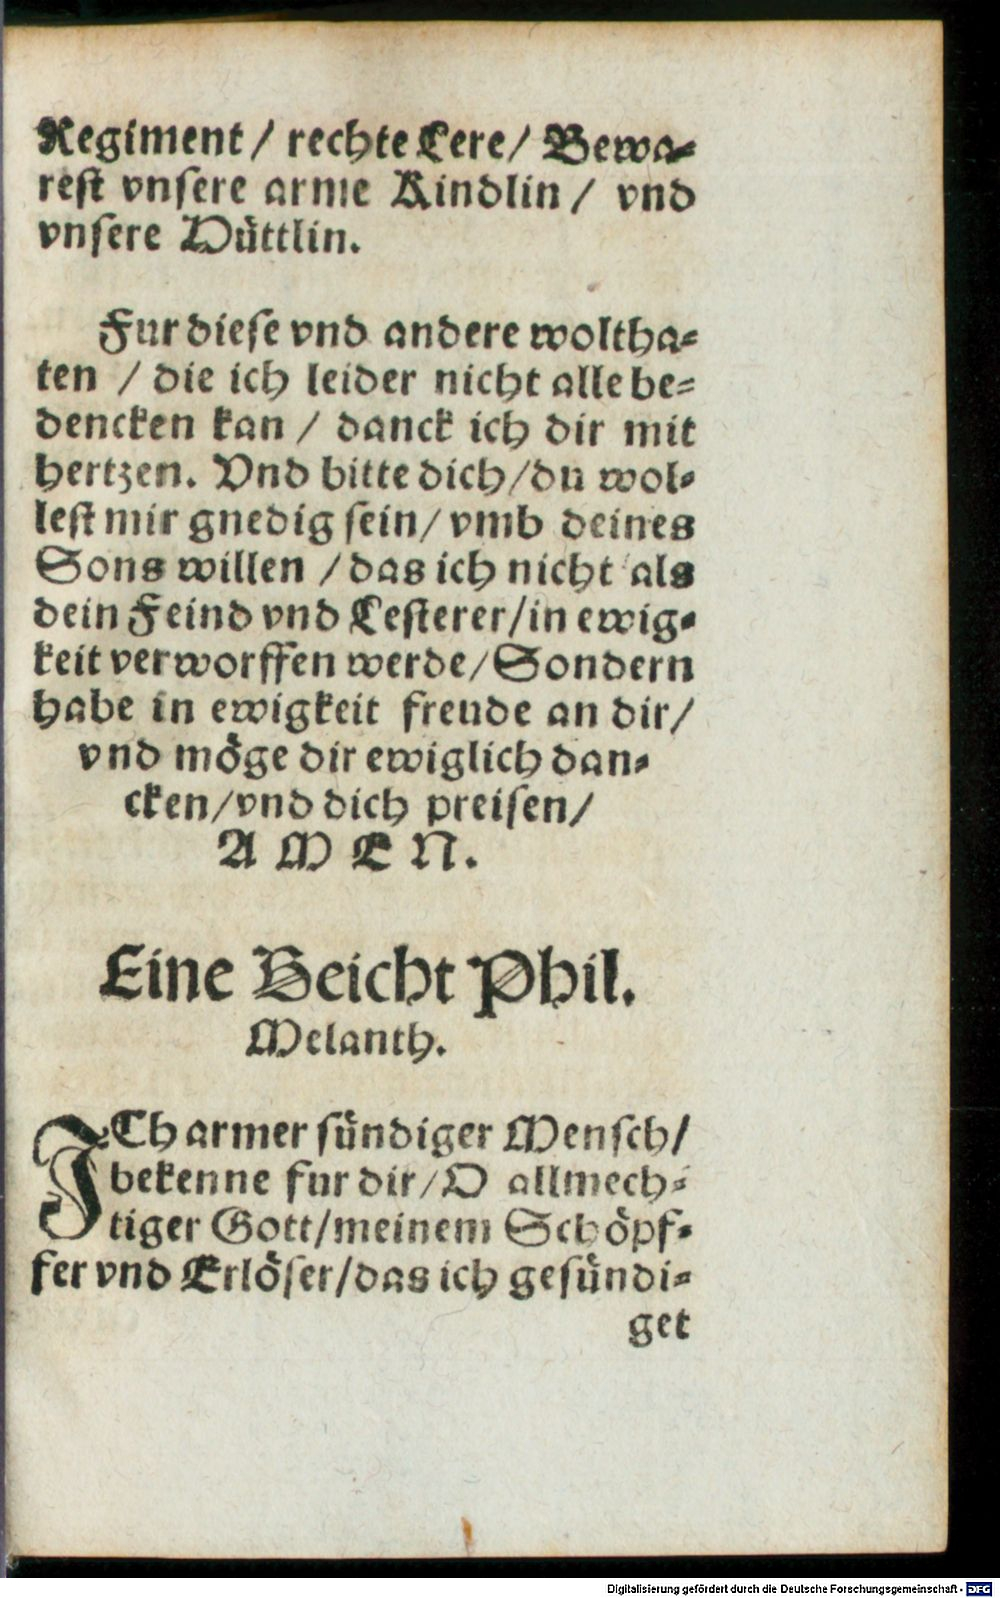 Regiment / rechte Lere / Bewa⸗
rest vnsere arme Kindlin / vnd
vnsere Hüttlin.
Fur diese vnd andere woltha⸗
ten / die ich leider nicht alle be⸗
dencken kan / danck ich dir mit
hertzen. Vnd bitte dich / du wol⸗
lest mir gnedig sein / vmb deines
Sons willen / das ich nicht als
dein Feind vnd Lesterer / in ewig⸗
keit verworffen werde / Sondern
habe in ewigkeit freude an dir /
vnd möge dir ewiglich dan⸗
cken / vnd dich preisen /
A M E N.
Eine Beicht Phil.
Melanth.
ICh armer sündiger Mensch /
bekenne fur dir / O allmech⸗
tiger Gott / meinem Schöpf⸗
fer vnd Erlöser / das ich gesündi⸗
get
Digitalisierung gefördert durch die Deutsche Forschungsgemeinschaft - DFG